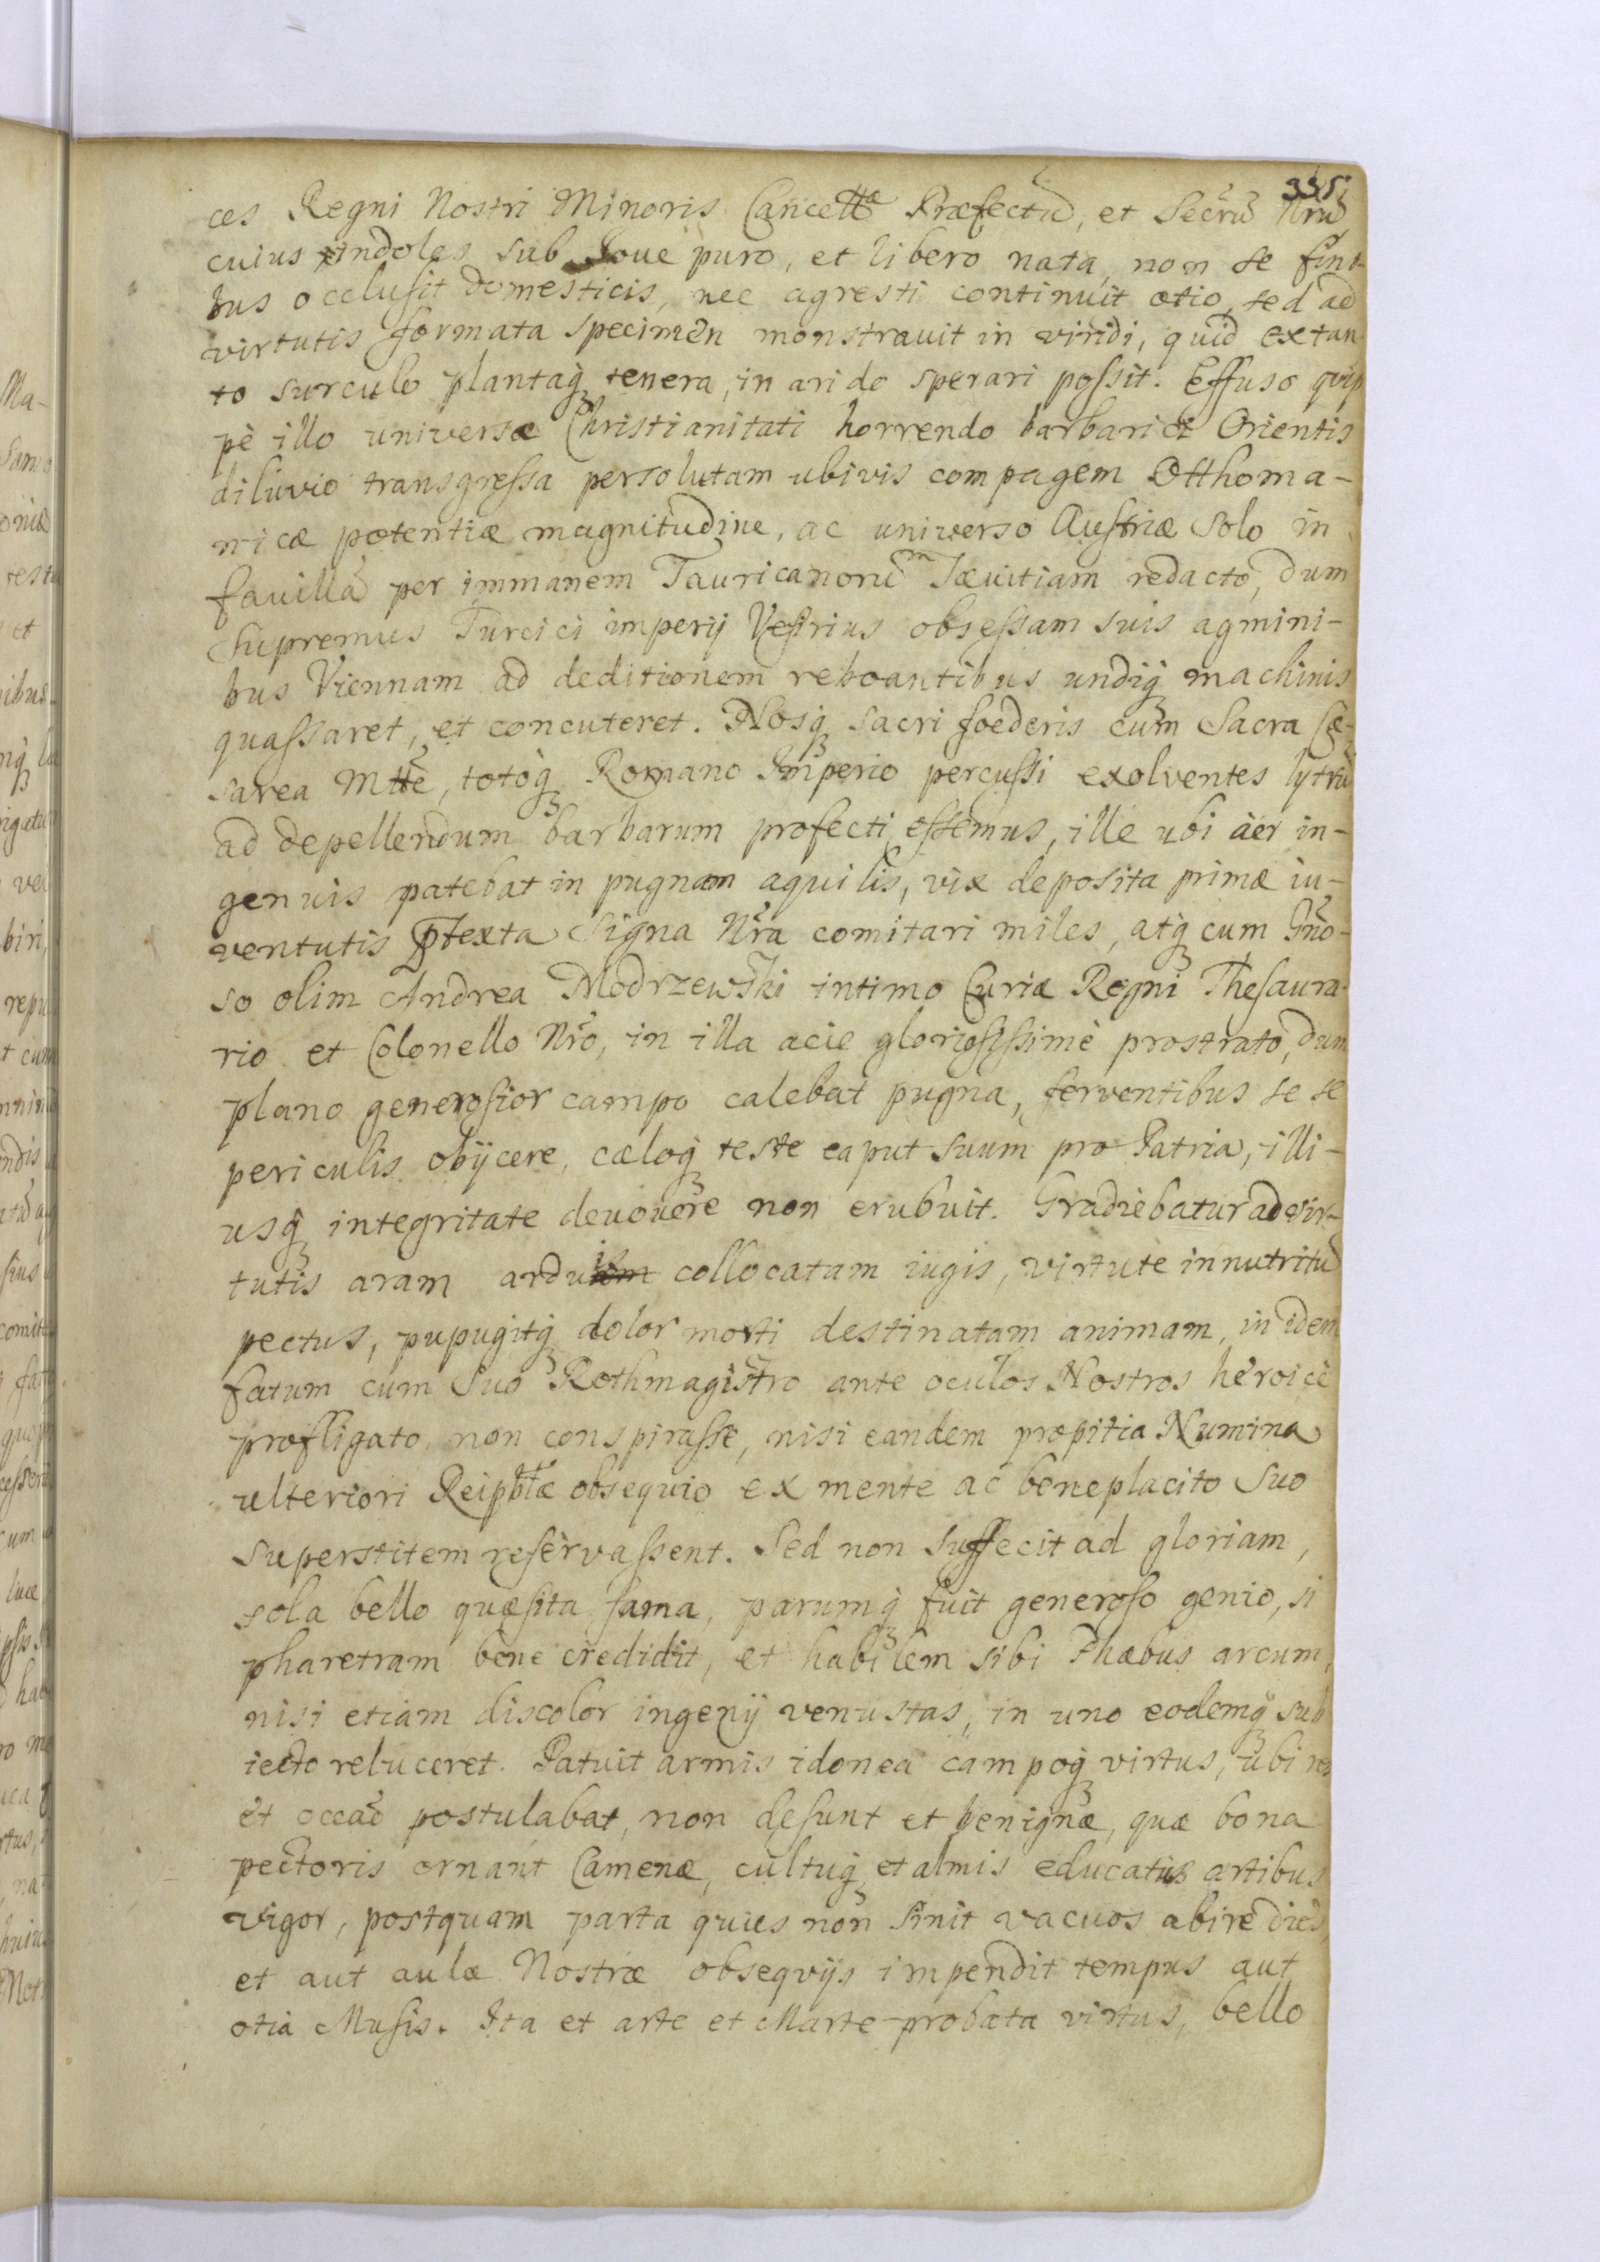 335
ces Regni Nostri Minoris Cancellæ Præfectũ, et Secrũ Nrũ
cuius indoles sub Ioue puro, et libero nata, non se fini-
bus occlusit domesticis, nec agresti continuit otio, sed ad
virtutis formata specimen monstravit in viridi, quid ex tan-
to surculo plantaq́ tenera, in arido sperari possit. Effuso quip
pè illo universæ Christianitati horrendo barbarici Orientis
diluvio transgressa persolutam ubivis compagem Otthoma-
nicæ potentiæ magnitudine, ac universo Austriæ Solo in
favillã per immanem Tauricanorũ Sævitiam redacto, dum
Supremus Turcici imperij Vesirius obsessam suis agmini-
bus Viennam ad deditionem reboantibus undiq́ machinis
quassaret, et concuteret. Nosq́ sacri foederis cum Sacra Cæ-
sarea Mtte, totoq́ Romano Imperio percussi exolventes lytrũ
ad depellendum barbarum profecti essemus, ille ubi àer in-
genuis patebat in pugnam aquilis, vix deposita primæ iu-
ventutis ptexta Signa Nra comitari miles, atq́ cum Gño-
so olim Andrea Modrzewski intimo Curiæ Regni Thesaura-
rio et Colonello Nro, in illa acie gloriosissimè prostrato, dum
plano generosior campo calebat pugna, ferventibus se se
periculis obijcere, cæloq́ teste caput suum pro Patria, illi-
usq́ integritate devovere non erubuit. Gradiebatur ad vir-
tutis aram arduis collocatam iugis, virtute innutritũ
pectus, pupugitq́ dolor morti destinatam animam, in idem
fatum cum Suo Rothmagistro ante oculos Nostros heroicè
profligato non conspirasse, nisi eandem propitia Numina
ulteriori Reipbtæ obsequio ex mente ac beneplacito Suo
superstitem reservassent. Sed non suffecit ad gloriam,
sola bello quæsita fama, parumq́ fuit generoso genio, si
pharetram bene credidit, et habilem sibi Phæbus arcum,
nisi etiam discolor ingenij venustas, in uno eodemq́ sub
iecto reluceret. Patuit armis idonea campoq́ virtus, ubi res
et occaõ postulabat, non desunt et benignæ, quæ bona
pectoris ornant Camenæ, cultuq́ et almis educatus artibus
vigor, postquam parta quies non sinit vacuos abire dies,
et aut aulæ Nostræ obseqvijs impendit tempus aut
otia Musis. Ita et arte et Marte probata virtus, bello